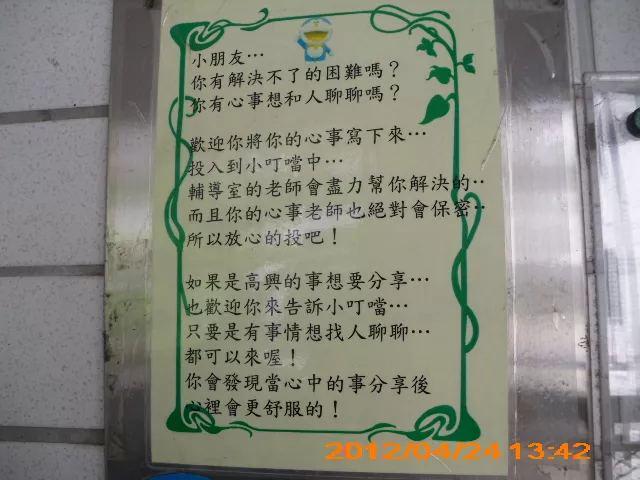 小朋友…
你有解決不了的困難嗎？
你有心事想和人聊聊嗎？
歡迎你將你的心事寫下來…
投入到小叮噹中…
輔導室的老師會盡力幫你解決的…
而且你的心事老師也絕對會保密…
所以放心的投吧！
如果是高興的事想要分享…
也歡迎你來告訴小叮噹…
只要是有事情想找人聊聊…
都可以來喔！
你會發現當心中的事分享後
心裡會更舒服的！
2012/04/24 13:42